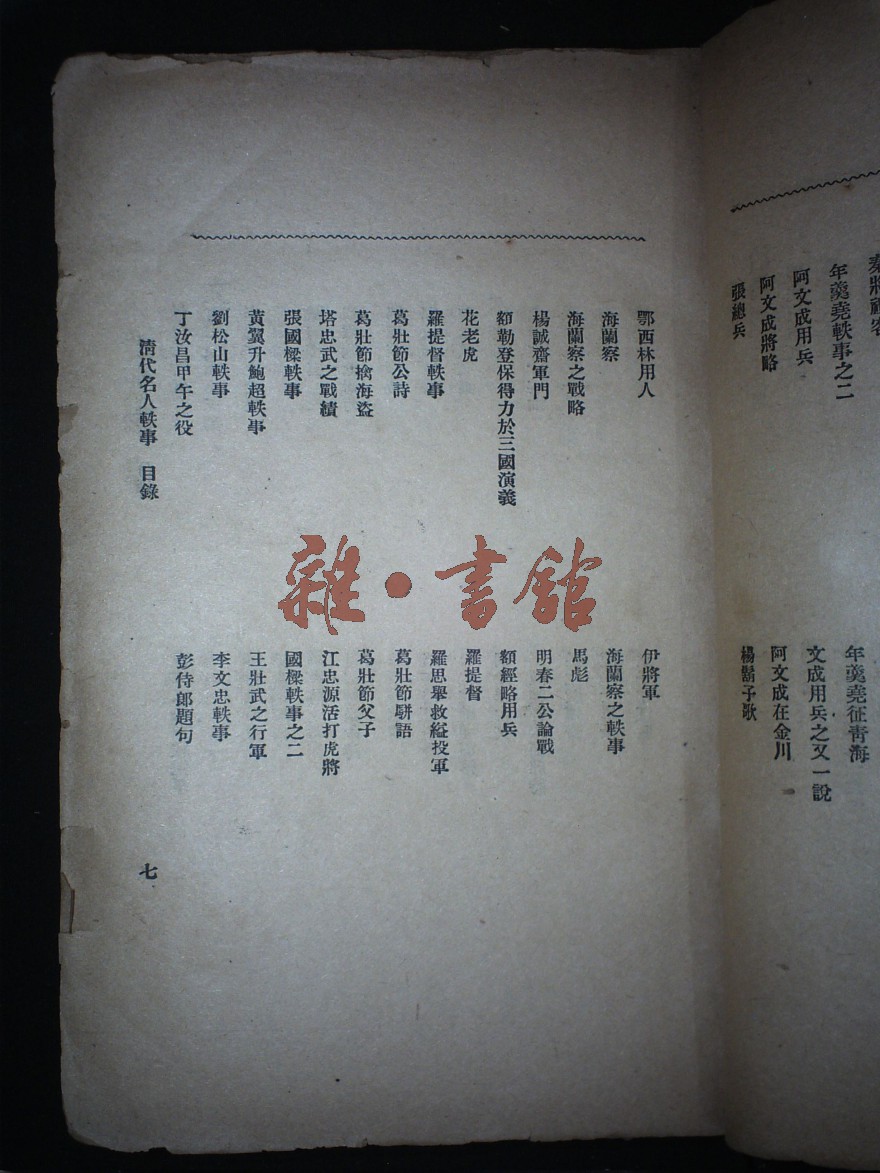 年羹堯軼事之二
阿文成用兵
阿文成將略
張總兵
年羹堯征青海
文成用兵之又一說
阿文成在金川
楊鬍子歌
鄂西林用人
海蘭察
海蘭察之戰略
楊誠齋軍門
額勒登保得力於三國演義
花老虎
羅提督軼事
葛壯節公詩
葛壯節擒海盜
塔忠武之戰績
張國樑軼事
黃翼升鮑超軼事
劉松山軼事
丁汝昌甲午之役
伊將軍
海蘭察之軼事
馬彪
明春二公論戰
額經略用兵
羅提督
羅思舉救縊投軍
葛壯節駢語
葛壯節父子
江忠源活打虎將
國樑軼事之二
王壯武之行軍
李文忠軼事
彭侍郎題句
清代名人軼事 目錄
七
雜·書館